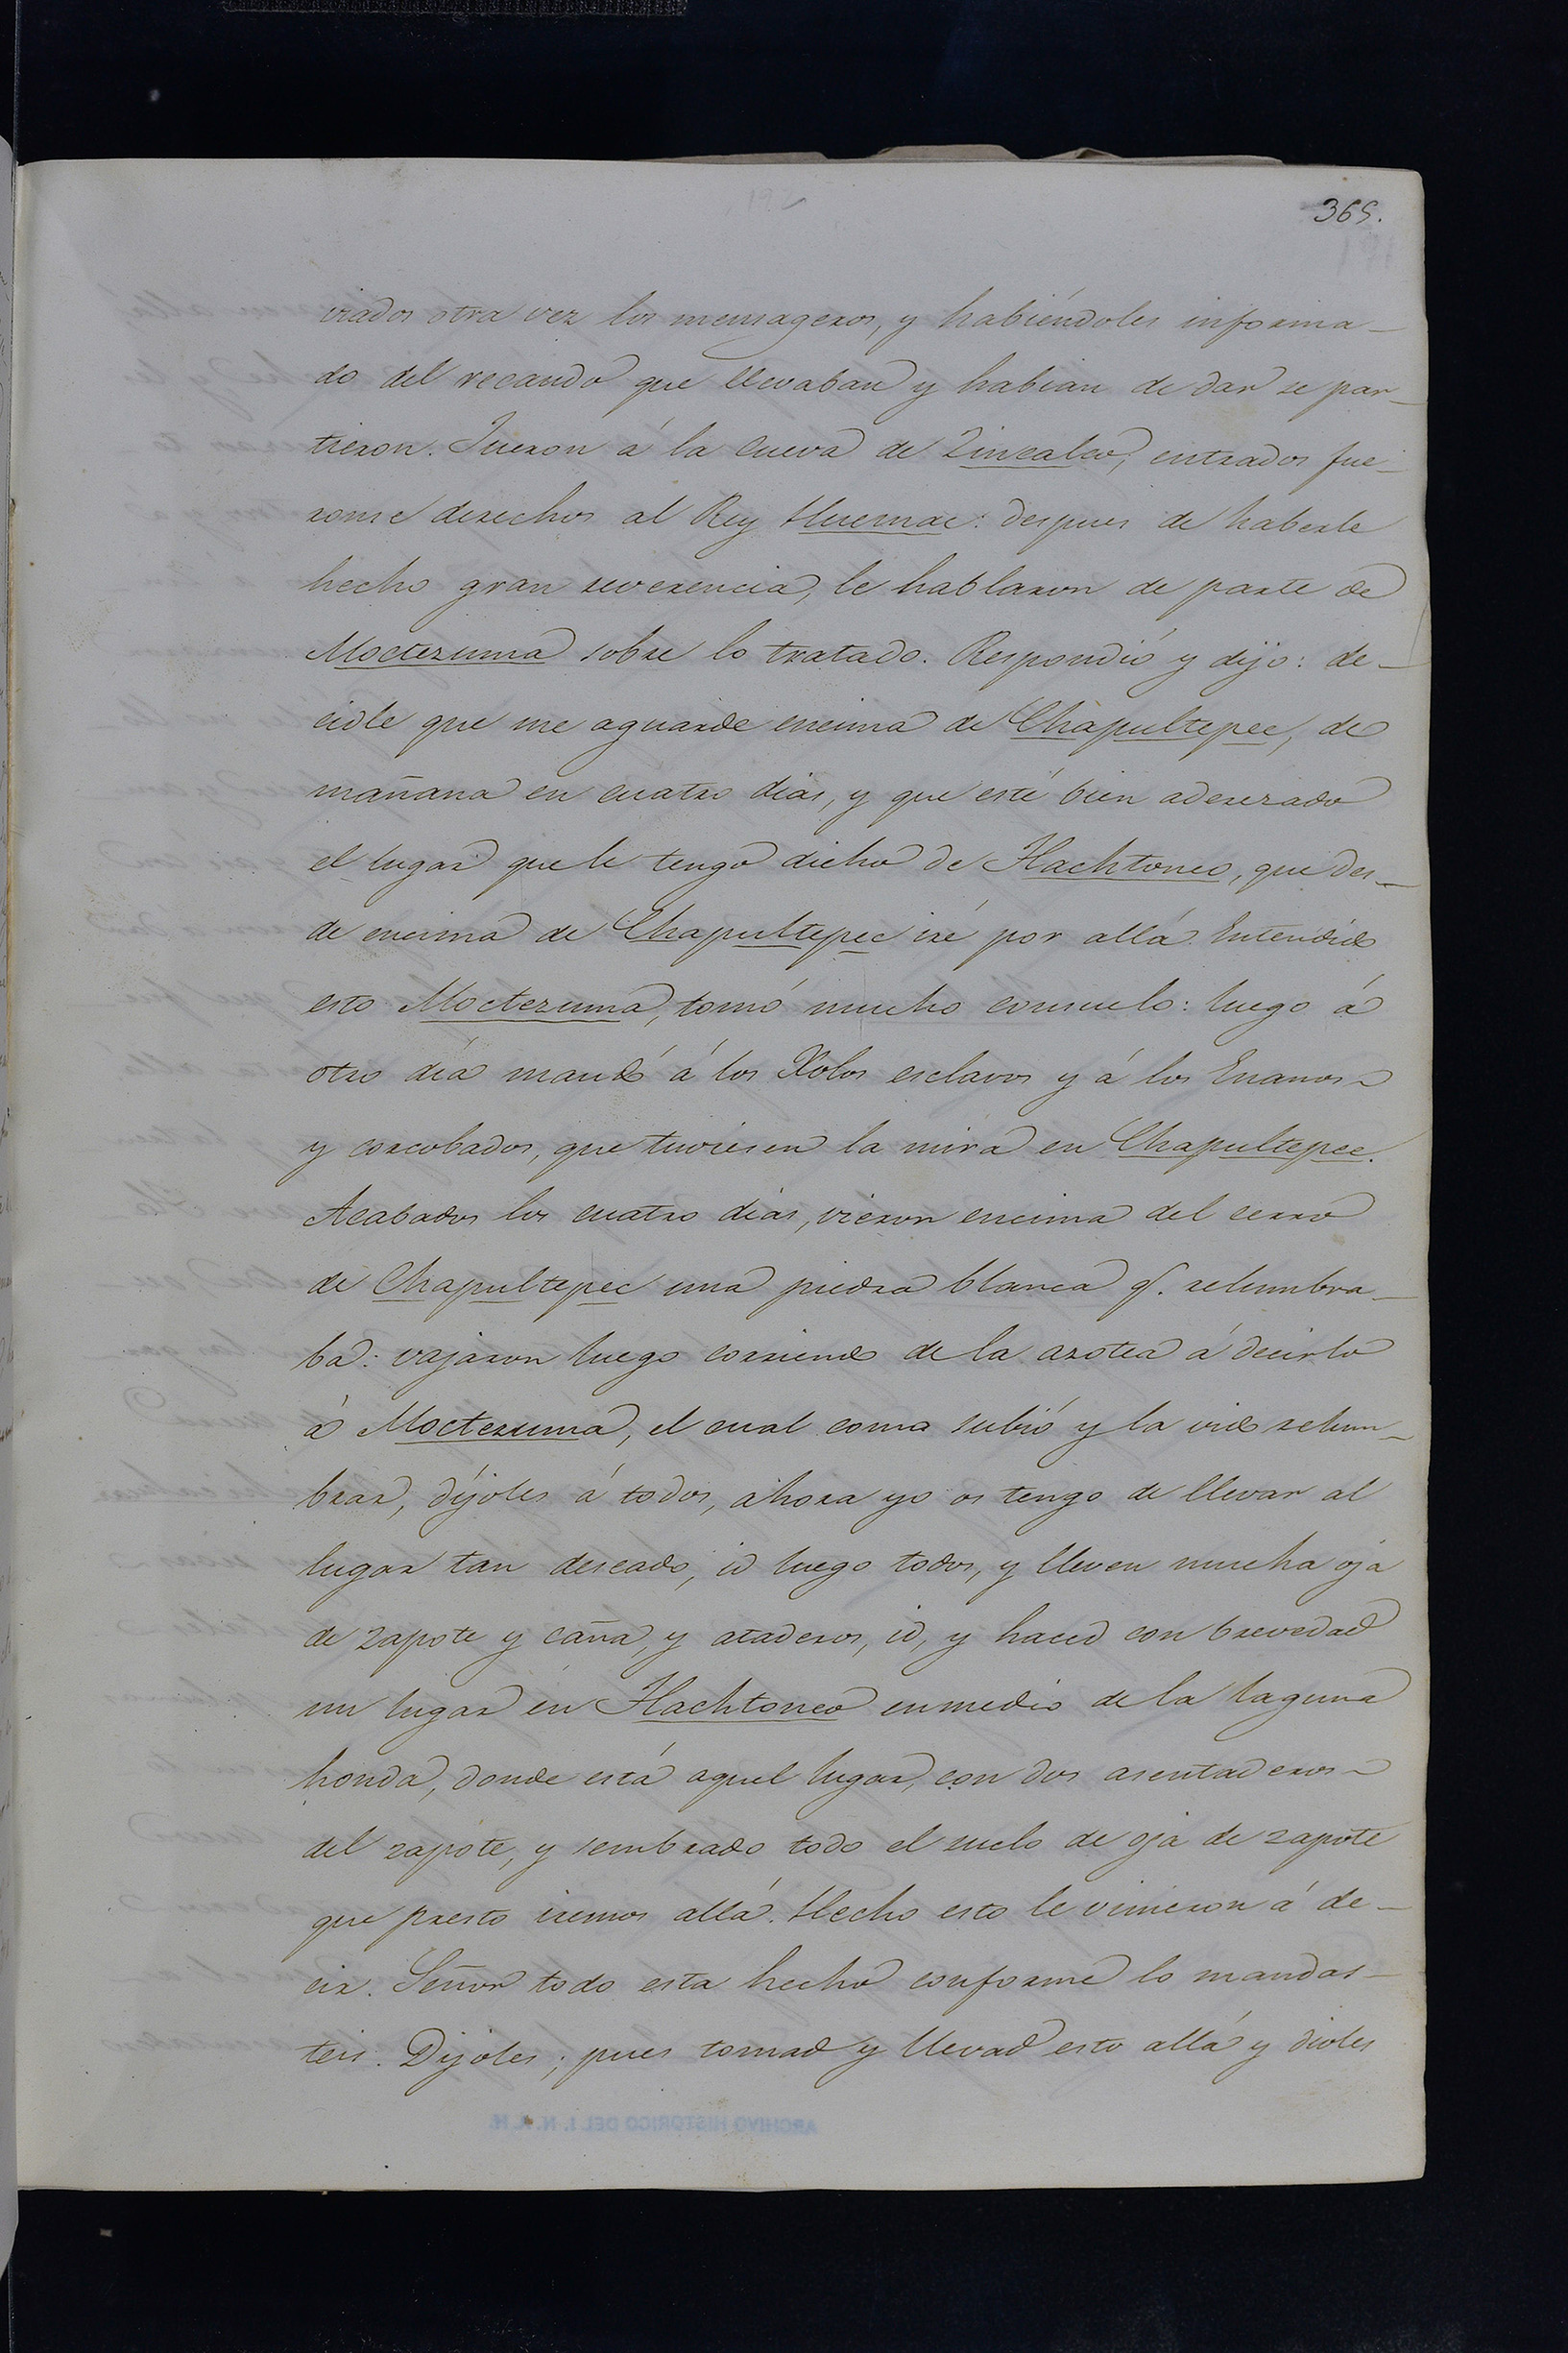 365.
viados otra vez los mensageros, y habiéndoles informa-
do del recaudo que llevaban y habian de dar se par-
tieron. Fueron á la Cueva de Zincalco, entrados fue-
ronse derechos al Rey Huemac: despues de haberle
hecho gran reverencia, le hablaron de parte de
Moctezuma sobre lo tratado. Respondió y dijo: de-
cidle que me aguarde encima de Chapultepec, de
mañana en cuatro dias, y que esté bien aderezado
el lugar que le tengo dicho de Tlachtonco, que des-
de encima de Chapultepec iré por allá. Entendido
esto Moctezuma, tomó mucho consuelo: luego á
otro dia mandó á los Xolos esclavos y á los Enanos
y corcobados, que tuviesen la mira en Chapultepec.
Acabados los cuatro dias, vieron encima del cerro
de Chapultepec una piedra blanca q. relumbra-
ba: vajaron luego corriendo de la azotea á decirlo
á Moctezuma, el cual como subió y la vido relum-
brar, díjoles á todos, ahora yo os tengo de llevar al
lugar tan deseado, id luego todos, y lleven mucha oja
de zapote y caña, y ataderos, id, y haced con brevedad
un lugar en Tlachtonco enmedio de la laguna
honda, donde está aquel lugar, con dos asentaderos
del zapote, y sembrado todo el suelo de oja de zapote
que presto iremos allá. Hecho esto le vinieron á de-
cir. Señor todo esta hecho conforme lo mandas-
teis. Dijoles; pues tomad y llevad esto allá y dioles
ARCHIVO HISTORICO DEL I. N. A. H.